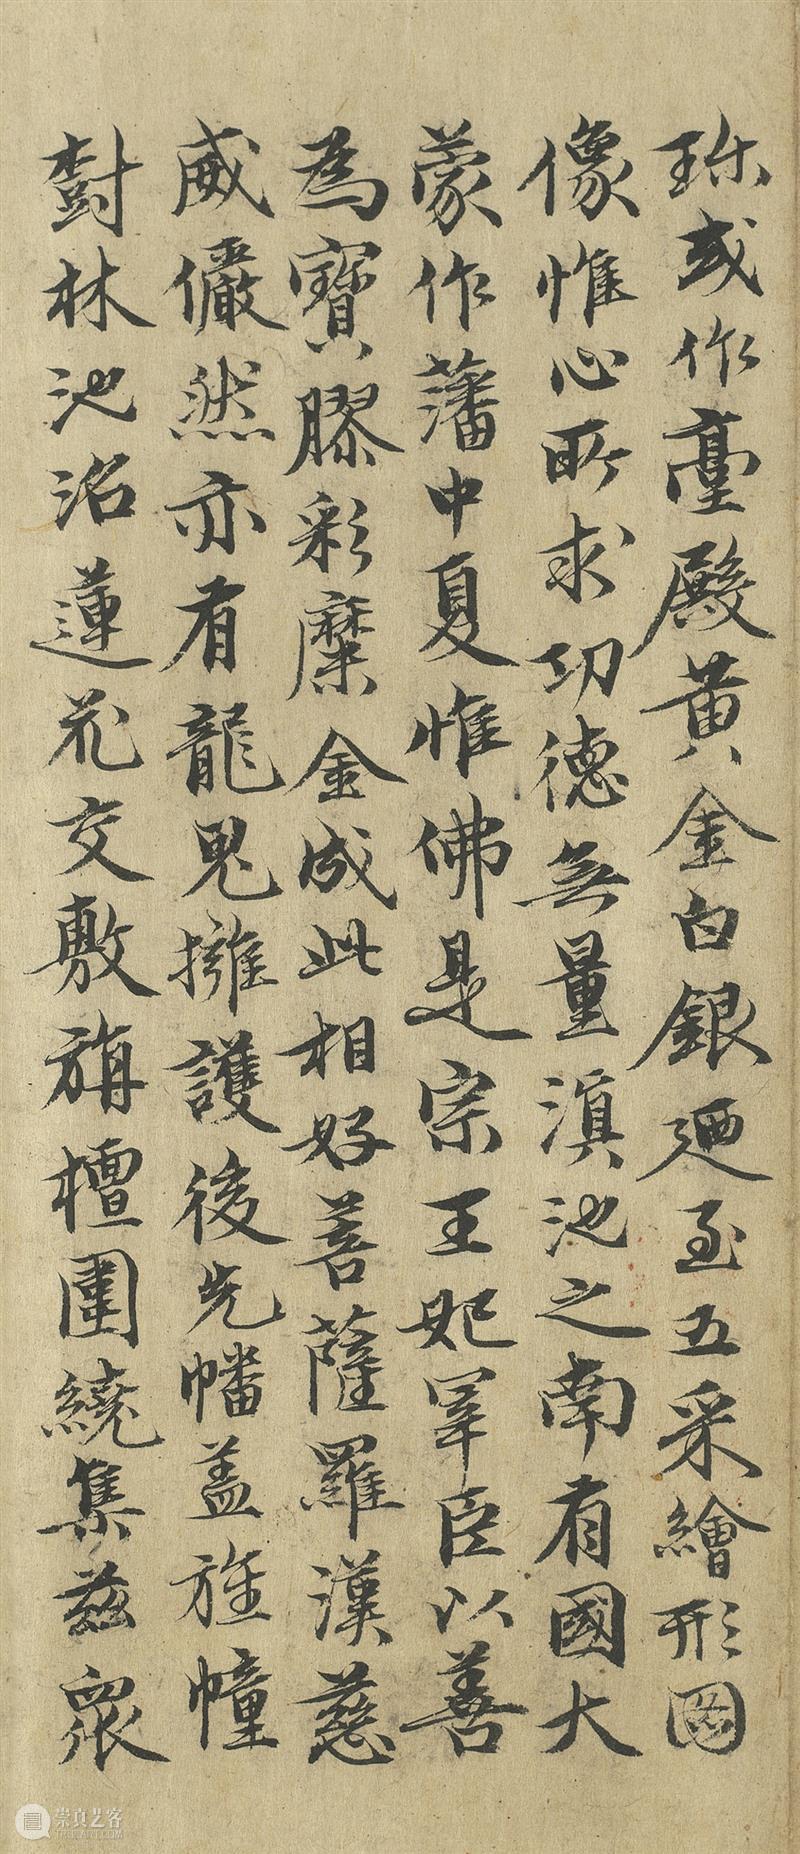 珎或作臺殿黃金白銀廼至五采繪形圖
像惟心所求功德無量滇池之南有國大
蒙作藩中夏惟佛是宗王妃宰臣以善
為寶膠彩糜金成此相好菩薩羅漢慈
威儼然亦有龍鬼擁護後先幡盖旌幢
樹林池沼蓮花交敷旃檀圍繞集茲眾
崇真艺客
TRUEART.COM